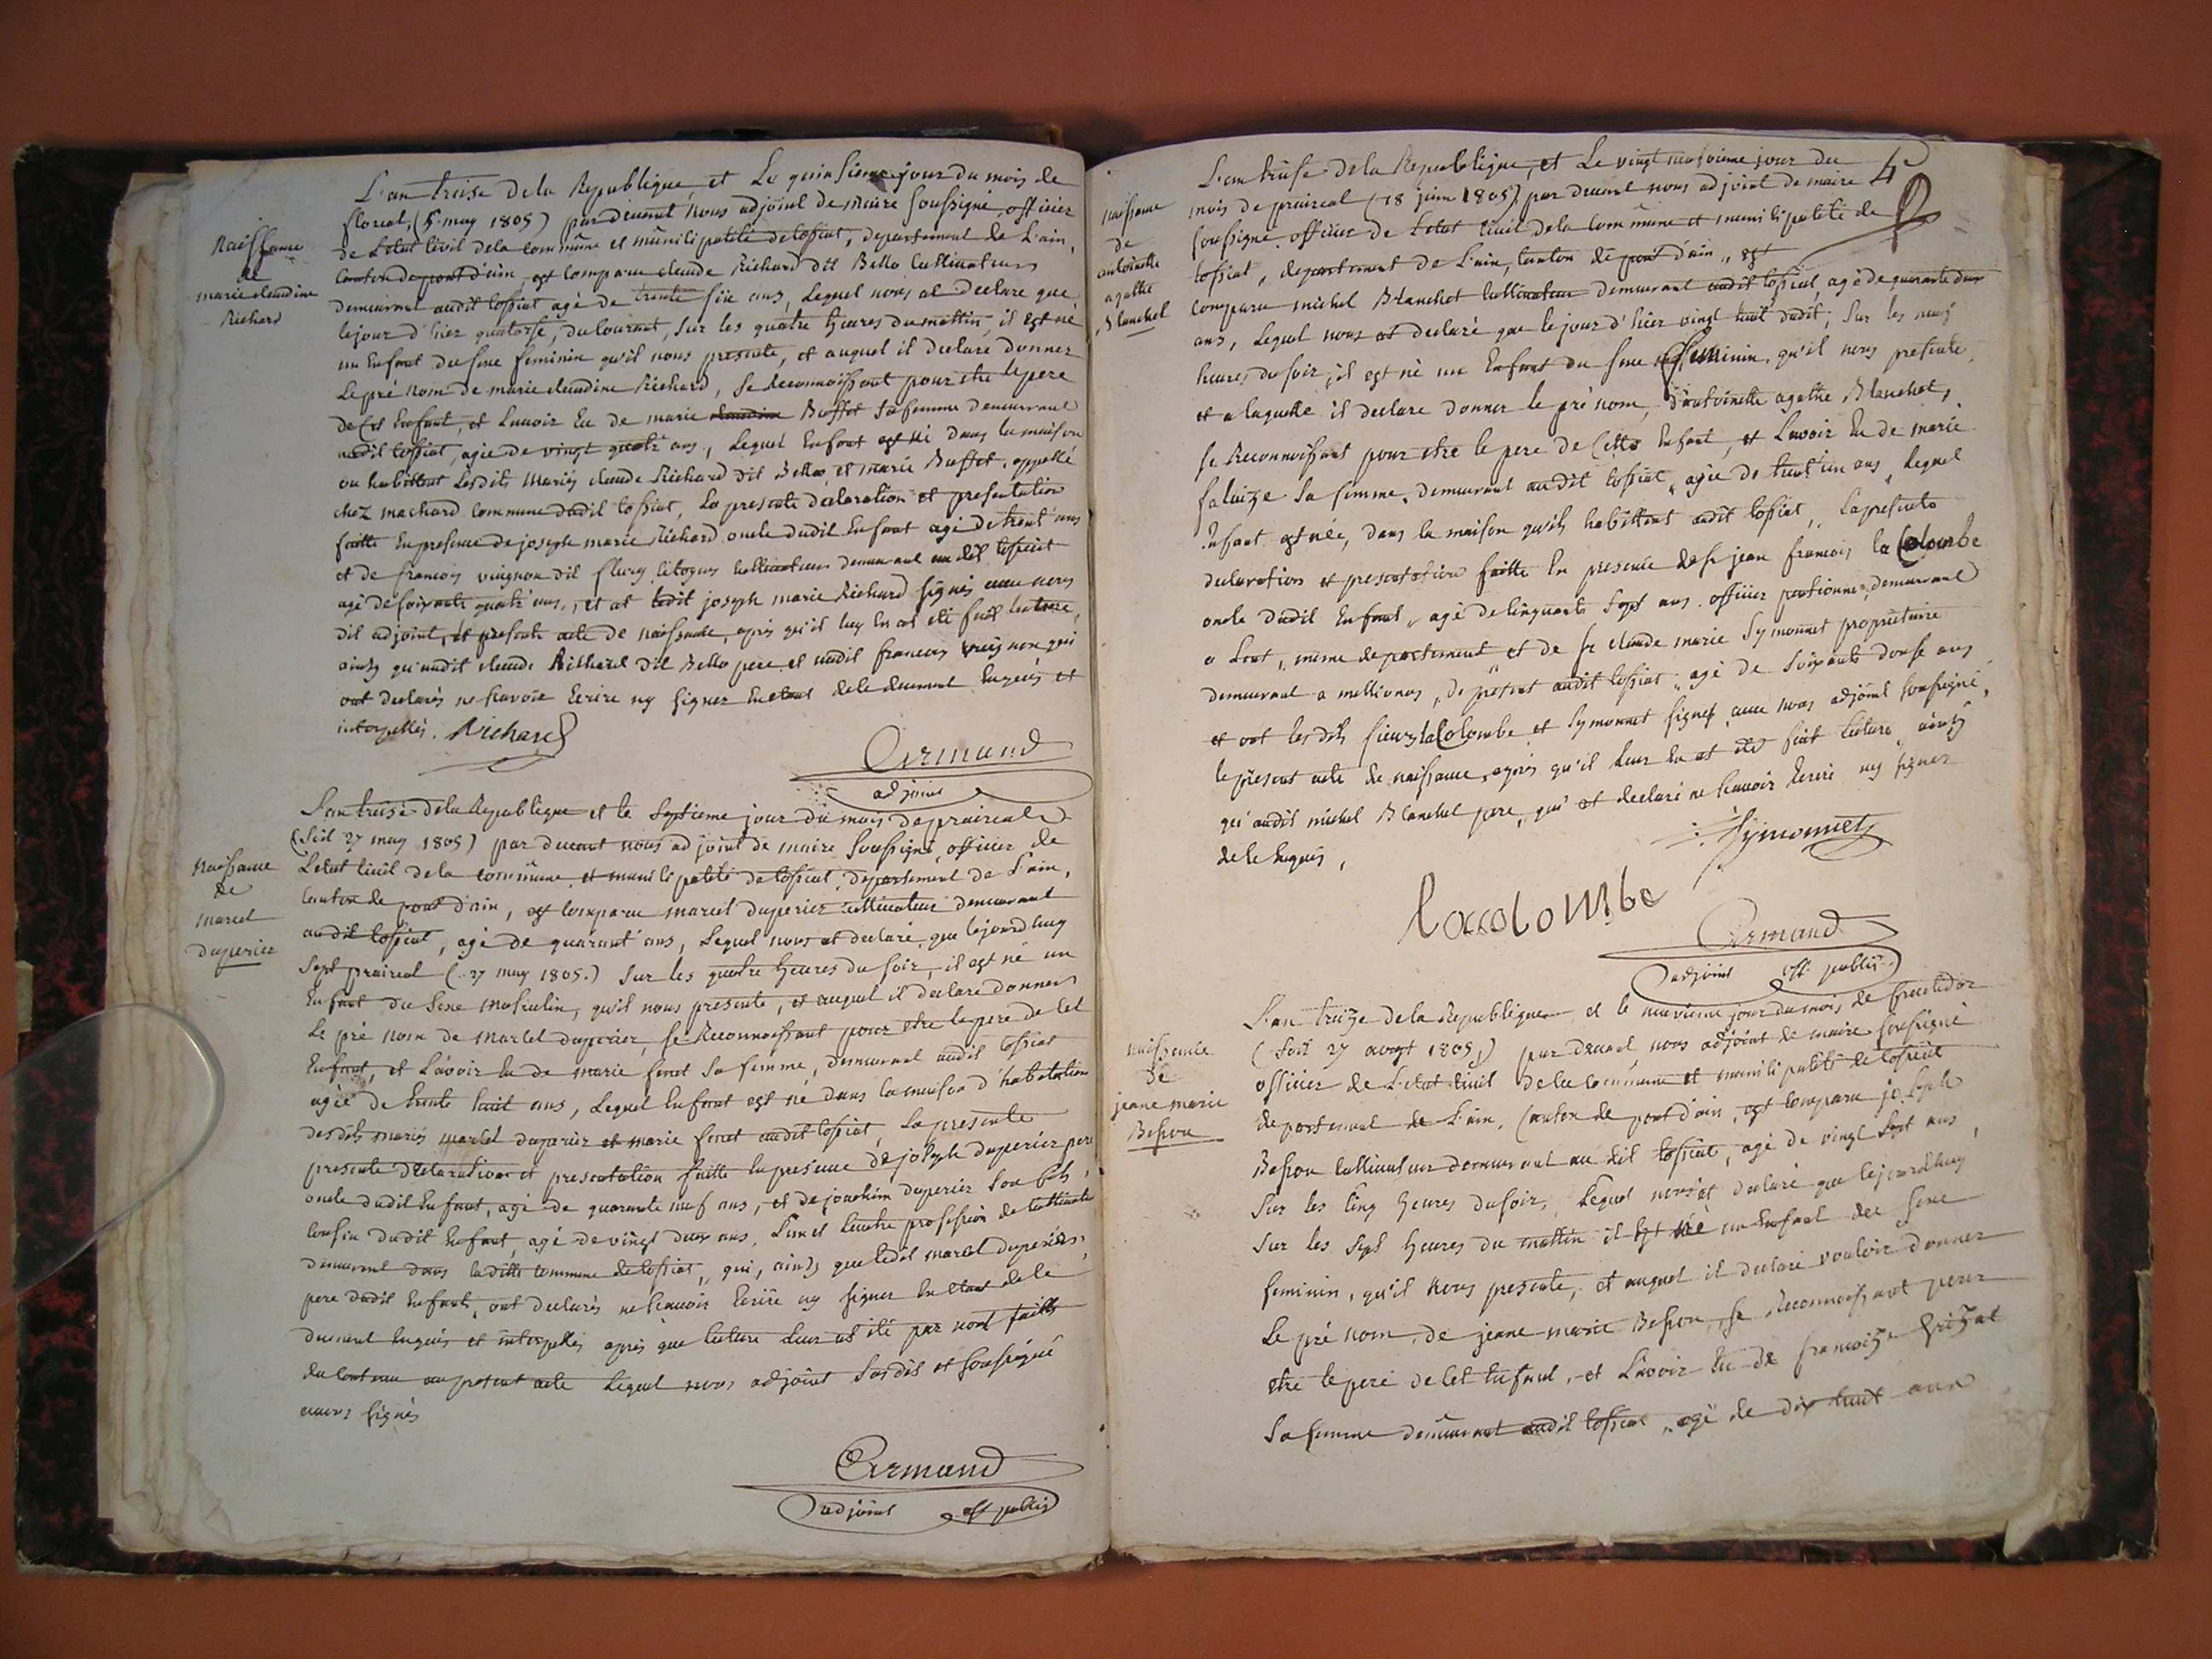 L'an treise de la Republique, et Le quinsieme jour du mois de
floreal, (5 may 1805) par devant nous adjoint de maire soussigné, officier
de L'etat Civil de la commûne et mûnicipalité de tossiat, departement de L'ain,
Canton de pont d'ain, est comparu claude Richard dit Bello Cultivateur
demeurant audit tossiat agé de trente six ans, Lequel nous at declare que
le jour d'hier quatorse, du Courant, sur les quatre heures du mattin, il est né
un Enfant du sexe feminin qu'il nous presente, et auquel il declare donner
Le pré nom de marie claudine Richard, se Reconnoissant pour etre le pere
de Cet Enfant, et L'avoir Eu de marie Buffet sa femme demeurant
audit tossiat, agée de vingt quatr'ans, Lequel Enfant est né dans la maison
ou habittent Lesdits Mariés claude Richard dit Bello et marie Buffet, appellé
chez machard Commune dudit tossiat, La presente declaration et presentation
faitte En presence de joseph marie Richard oncle dudit Enfant agé de trent'ans
et de francois vuignon dit fleury Citoyens Cultivateurs demeurant audit tossiat
agé de soixante quatr'ans, et at ledit joseph marie Richard signés avec nous
dit adjoint, le present acte de naissance, après qu'il luy En at été fait Lecture,
ainsy qu'audit claude Richard dit Bello pere et audit francois vuignon qui
ont declarés ne scavoir Ecrire ny signer En etant de le deument Enquis et
interpellés. Richard
Armand
adjoint
Naissance
de
marie claudine
Richard
L'an treise de la Republique et le septieme jour du mois de praireal
(soit 27 may 1805) par devant nous adjoint de maire soussigné, officier de
L'etat Civil de la commûne et municipalité de tossiat, departement de L'ain,
Canton de pont d'ain, est comparu marcel duperier cultivateur demeurant
audit tossiat, agé de quarant'ans, Lequel nous at declaré, que le jourd'huy
sept praireal (27 may 1805.) sur les quatre heures du soir, il est né un
Enfant du sexe masculin, qu'il nous presente, et auquel il declare donner
Le pré nom de marcel duperier, se Reconnoissant pour etre le pere de Cet
Enfant, et L'avoir Eu de marie feret sa femme, demeurant audit tossiat
agée de trente huit ans, Lequel Enfant est né dans la maison d'habitation
desdits mariés marcel duperier et marie feret audit tossiat, La presente
presente declaration et presentation faitte En presence de joseph duperier pere
oncle dudit Enfant, agé de quarante neuf ans, et de joachim duperier son fils,
Cousin dudit Enfant, agé de vingt deux ans, L'un et L'autre profession de Cultivateur
demeurant dans laditte commune de tossiat, qui, ainsy que ledit marcel duperier,
pere dudit Enfant, ont declarés ne scavoir Ecrire ny signer En etant de le
deument Enquis et interpellés après que lecture leur at été par nous faitte
du Contenu au present acte Lequel nous adjoint susdit et soussigné
avons signés
Armand
adjoint off. public
Naissance
de
marcel
duperier
4
L'an treise de la Republique, et Le vingt neufvieme jour du
mois de praireal (18 juin 1805) par devant nous adjoint de maire
soussigné officier de L'etat Civil de la commûne et municipalité de
tossiat, departement de L'ain, Canton de pont d'ain, est
comparu michel Blanchet Cultivateur demeurant audit tossiat, agé de quarante deux
ans, Lequel nous at declaré que le jour d'hier vingt huit dudit, sur les neuf
heures du soir, il est né un Enfant du sexe feminin, qu'il nous presente
et a laquelle il declare donner le pré nom, d'antoinette agathe Blanchet,
se Reconnoissant pour etre le pere de Cette Enfant, et L'avoir Eu de marie
falaize sa femme, demeurant audit tossiat, agée de trent'un ans, Lequel
Enfant est née, dans la maison qu'ils habittent audit tossiat, La presente
declaration et presentation faitte En presence de sr jean francois la Colombe
oncle dudit Enfant, agé de Cinquante sept ans, officier pentionné, demeurant
a Cent, même departement et de sr claude marie symonnet propriettaire
demeurant a mellionas, de present audit tossiat, agé de soixante douse ans
et ont lesdits sieurs la Colombe et symonnet signés, avec nous adjoint soussigné,
le present acte de naissance, après qu'il leur En at été fait lecture, ainsy
qu'audit michel Blanchet pere, qui at declaré ne scavoir Ecrire ny signer
de le Enquis,
Symonnet
lacolombe
Armand
adjoint off. public
naissance
de
antoinette
agathe
Blanchet
L'an treize de la Republique et le neuvieme jour du mois de fructidor
(soit 27 avoust 1805,) par devant nous adjoint de maire soussigné
officier de L'etat Civil de la commûne et municipalité de tossiat
departement de L'ain, Canton de pont d'ain, est comparu joseph
Besson Cultivateur demeurant audit tossiat, agé de vingt sept ans,
sur les Cinq heures du soir, Lequel nous at declaré que le jourd'huy
sur les sept heures du mattin il Est né un Enfant du sexe
feminin, qu'il nous presente, et auquel il declare vouloir donner
Le pré nom, de jeane marie Besson, se Reconnoissant pour
etre le pere de Cet Enfant, et L'avoir Eu de francoize
sa femme demeurant audit tossiat, agé de dix huit ans
naissance
de
jeane marie
Besson